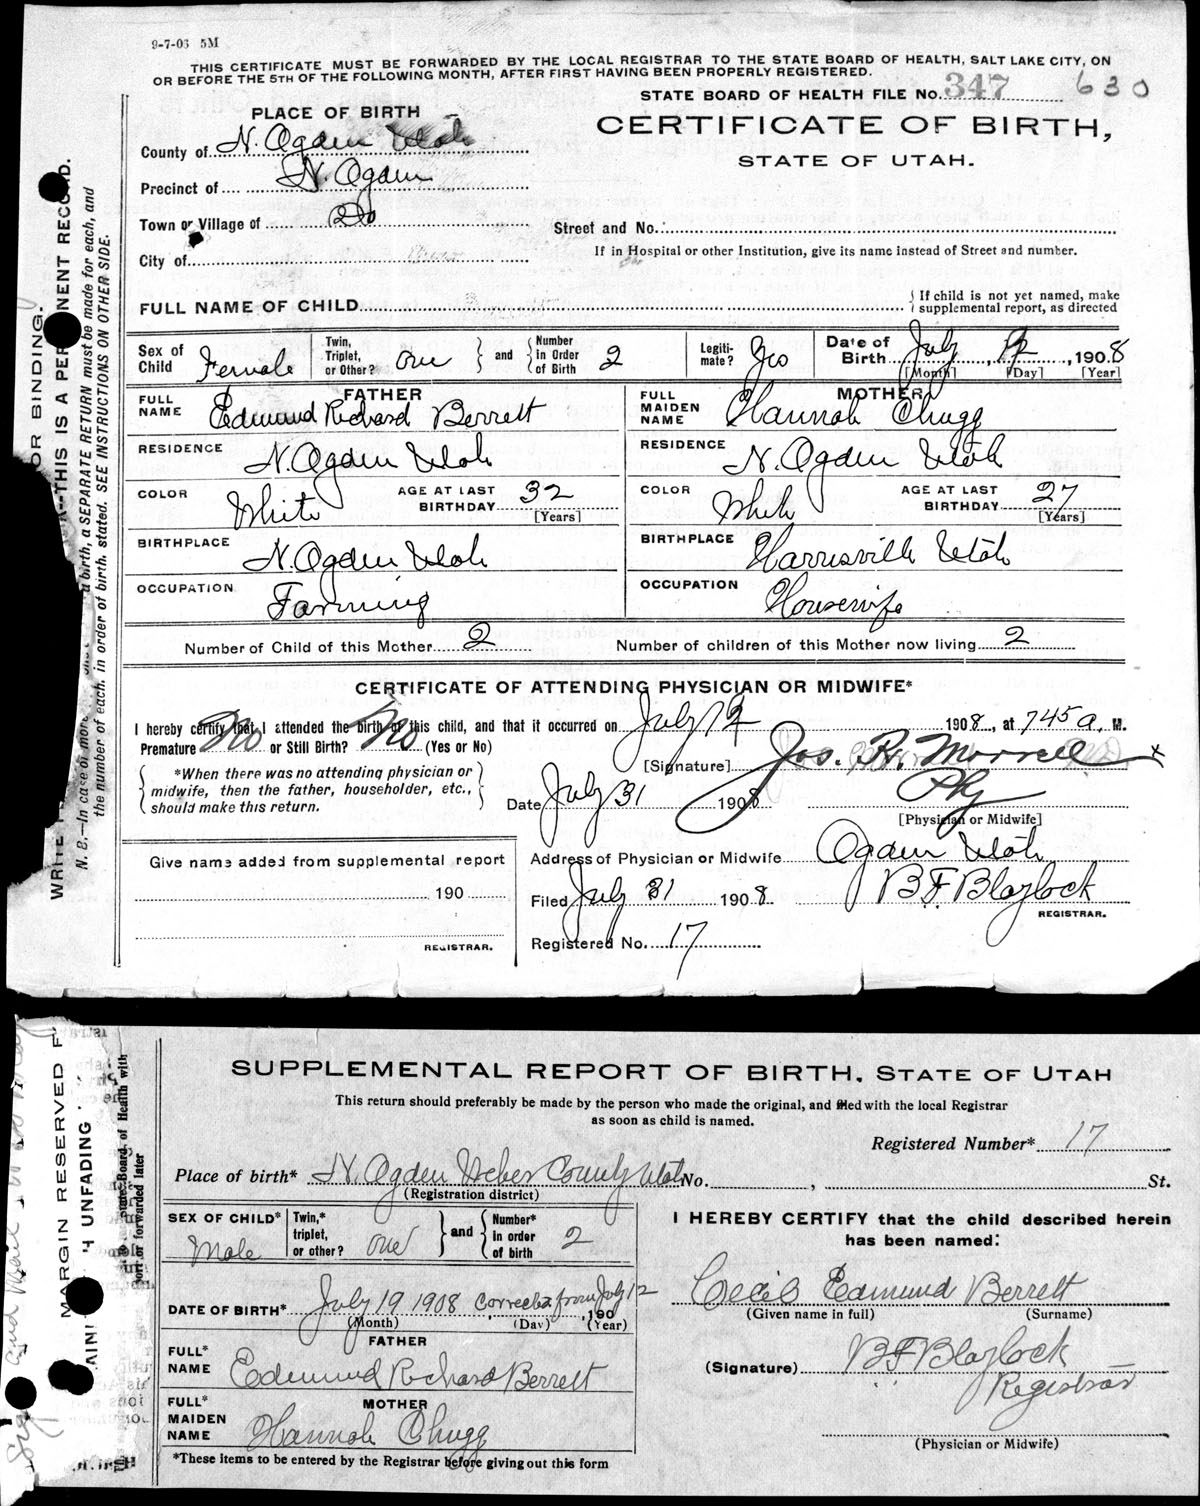 9-7-03 5M
THIS CERTIFICATE MUST BE FORWARDED BY THE LOCAL REGISTRAR TO THE STATE BOARD OF HEALTH, SALT LAKE CITY, ON
OR BEFORE THE 5TH OF THE FOLLOWING MONTH, AFTER FIRST HAVING BEEN PROPERLY REGISTERED.
STATE BOARD OF HEALTH FILE No. 347 630
PLACE OF BIRTH
CERTIFICATE OF BIRTH,
STATE OF UTAH.
County of N. Ogden Utah
Precinct of N. Ogden
Town or Village of Do
Street and No.
If in Hospital or other Institution, give its name instead of Street and number.
City of
FULL NAME OF CHILD
If child is not yet named, make
supplemental report, as directed
Sex of Child Female
Twin, Triplet, or Other? one and Number in Order of Birth 2
Legitimate? Yes
Date of Birth July 12, 1908
[Month] [Day] [Year]
FATHER
FULL NAME Edmund Richard Berrett
MOTHER
FULL MAIDEN NAME Hannah Chugg
RESIDENCE N. Ogden Utah
RESIDENCE N. Ogden Utah
COLOR White AGE AT LAST BIRTHDAY 32 [Years]
COLOR White AGE AT LAST BIRTHDAY 27 [Years]
BIRTHPLACE N. Ogden Utah
BIRTHPLACE Harrisville Utah
OCCUPATION Farming
OCCUPATION Housewife
Number of Child of this Mother 2 Number of children of this Mother now living 2
CERTIFICATE OF ATTENDING PHYSICIAN OR MIDWIFE*
I hereby certify that I attended the birth of this child, and that it occurred on July 12 1908, at 745 a. M.
Premature No or Still Birth? No (Yes or No)
[Signature] Jos. R. Morrell
*When there was no attending physician or
midwife, then the father, householder, etc.,
should make this return.
Date July 31 1908
Phy
[Physician or Midwife]
Give name added from supplemental report
190
REGISTRAR.
Address of Physician or Midwife Ogden Utah
Filed July 31 1908 B F Blaylock
REGISTRAR.
Registered No. 17
OR BINDING.
THIS IS A PERMANENT RECORD.
N. B.—In case of more birth, a SEPARATE RETURN must be made for each, and
the number of each, in order of birth, stated. SEE INSTRUCTIONS ON OTHER SIDE.
WRITE
SUPPLEMENTAL REPORT OF BIRTH, STATE OF UTAH
This return should preferably be made by the person who made the original, and filed with the local Registrar
as soon as child is named.
Registered Number* 17
Place of birth* N. Ogden Weber County Utah No. , St.
(Registration district)
SEX OF CHILD* Male
Twin,* triplet, or other? one and Number* in order of birth 2
I HEREBY CERTIFY that the child described herein
has been named:
Cecil Edmund Berrett
(Given name in full) (Surname)
DATE OF BIRTH* July 19 1908 corrected from July 12 , 190
(Month) (Day) (Year)
FATHER
FULL* NAME Edmund Richard Berrett
(Signature) B F Blaylock
Registrar
MOTHER
FULL* MAIDEN NAME Hannah Chugg
(Physician or Midwife)
*These items to be entered by the Registrar before giving out this form
MARGIN RESERVED F
H UNFADING
State Board of Health with
port or forwarded later